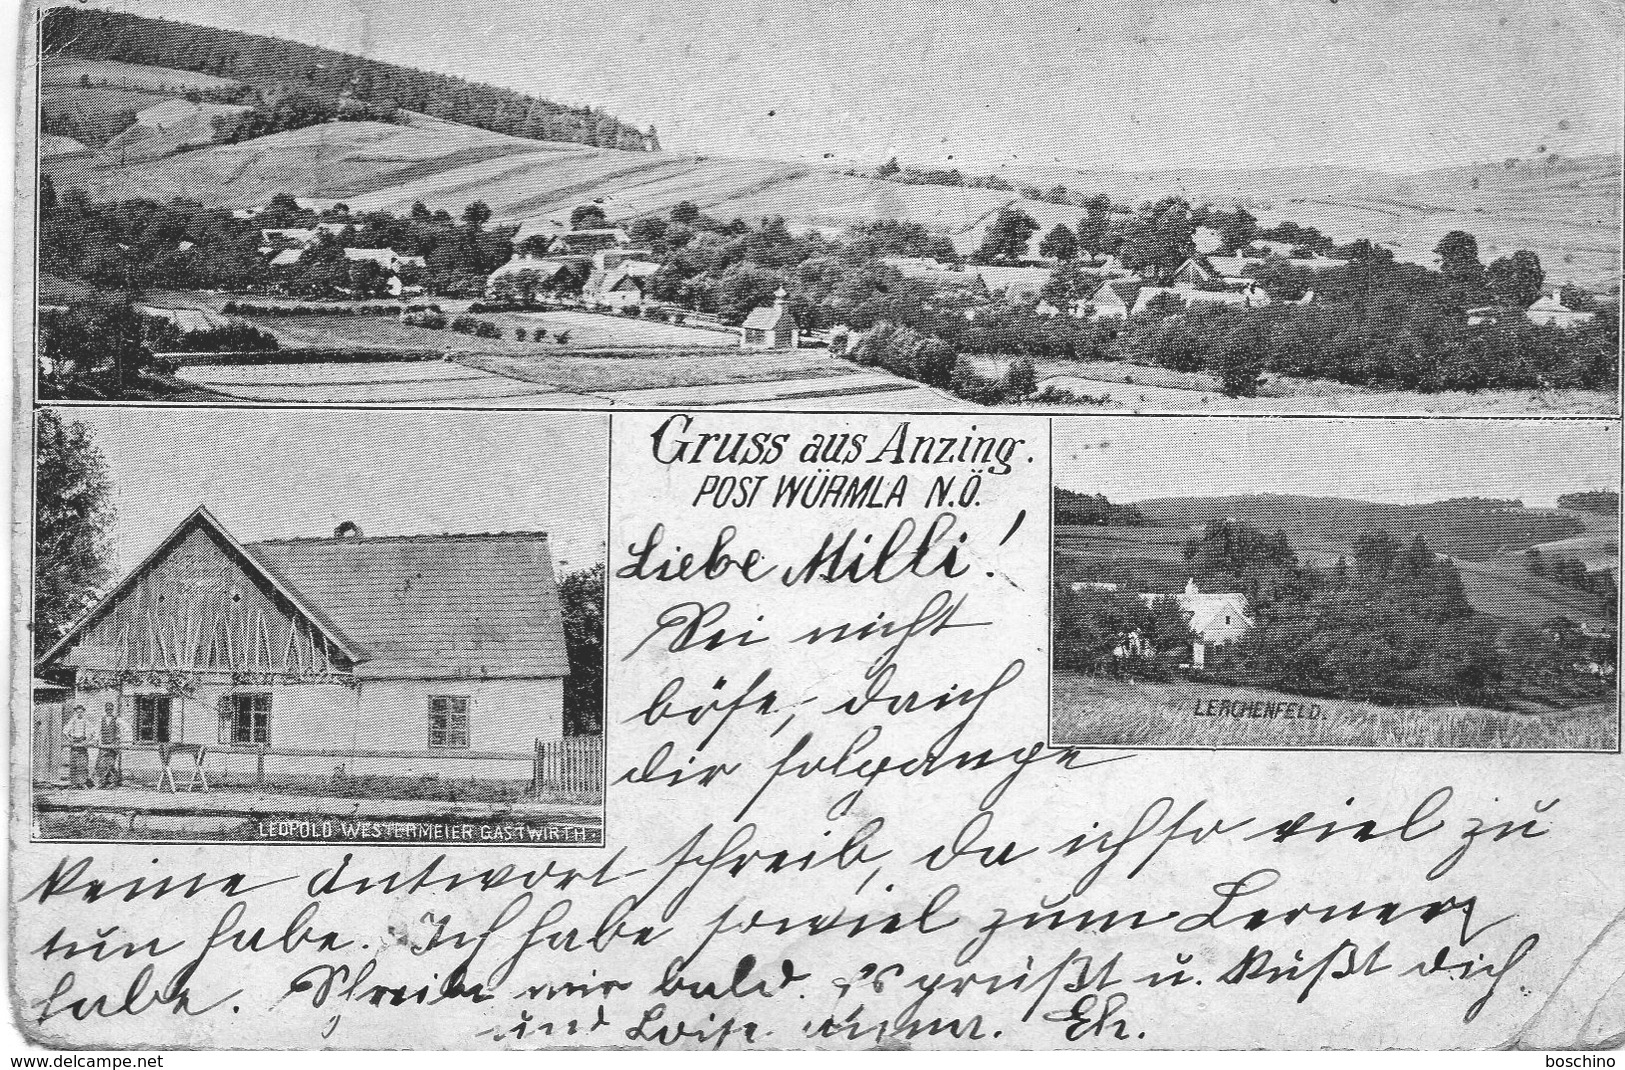 Gruss aus Anzing.
POST WÜRMLA N.Ö.
Liebe Milli!
Sei nicht
böse, da ich
dir so lange
LERCHENFELD.
LEOPOLD WESTERMEIER GASTWIRTH.
keine Antwort schreib, da ich so viel zu
tun habe. Ich habe soviel zum Lernen
habe. Schreibe mir bald. Es grüßt u. küßt dich
und Loise. Eh.
delcampe.net
boschino